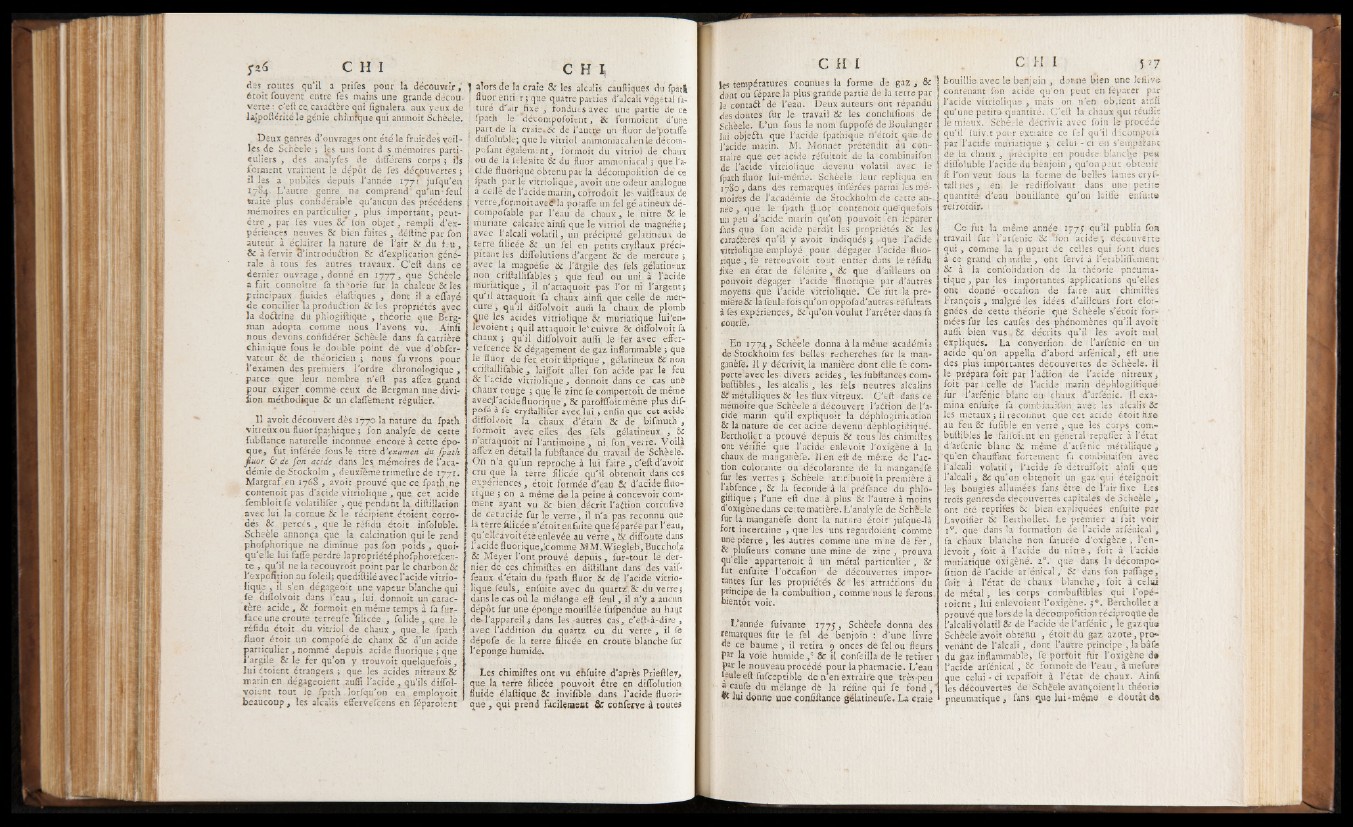 526 C H I
des routes qu'il a prises pour la découvrir,
étoit souvent entre ses mains une grande décou-
verte : c'est ce caractère qui signalera aux yeux de
la postérité le génie chimique qui animoit Schéele.
Deux genres d'ouvrages ont été le fruit des veil-
les de Schéele ; les uns sont des mémoires parti-
culiers, des analyses de différens corps ; ils
forment vraiment le dépôt de ses découvertes ;
il les a publiés depuis l'année 1771 jusqu'en
1784. L'autre genre ne comprend qu'un seul
traité plus considérable qu'aucun des précédens
mémoires en particulier, plus important, peut-
être, par les vues & son objet, rempli d'ex-
périences neuves & bien faites, destiné par son
auteur à éclairer la nature de l'air & du feu,
& à servir d'introduction & d'explication géné-
rale à tous ses autres travaux. C'est dans ce
dernier ouvrage, donné en 1777, que Schéele
a fait connoître sa théorie sur la chaleur & les
principaux fluides élastiques, dont il a essayé
de concilier la production & les propriétés avec
la doctrine du phlogistique, théorie que Berg-
man adopta comme nous l'avons vu. Ainsi
nous devons considérer Schéele dans sa carrière
chimique sous le double point de vue d'obser-
vateur & de théoricien ; nous suivrons pour
l'examen des premiers l'ordre chronologique,
parce que leur nombre n'est pas assez grand
pour exiger comme ceux de Bergman une divi-
sion méthodique & un classement régulier.
Il avoit découvert dès 1770 la nature du spath
vitreux ou fluor spathique ; son analyse de cette
substance naturelle inconnue encore à cette épo-
que, fut insérée sous le titre d'examen du spath
fluor & de son acide dans les mémoires de l'aca-
démie de Stockolm, deuxième trimestre de 1771.
Margraf en 1768, avoit prouvé que ce spath ne
contenoit pas d'acide vitriolique, que cet acide
sembloit se volatiliser, que pendant la distillation
avec lui la cornue & le récipient étoient corro-
dés & percés, que le résidu étoit insoluble.
Schéele annonça que la calcination qui le rend
phosphorique ne diminue pas son poids, quoi-
qu'elle lui fasse perdre la propriété phosphorescen-
te, qu'il ne la recouvroit point par le charbon &
l'exposition au soleil; que distilé avec l'acide vitrio-
lique, il s'en dégageoit une vapeur blanche qui
se dissolvoit dans l'eau, lui donnoit un carac-
tère acide, & formoit en même temps à sa sur-
face une croute terreuse silicée, solide, que le
résidu étoit du vitriol de chaux, que le spath
fluor étoit un composé de chaux & d'un acide
particulier, nommé depuis acide fluorique ; que
l'argile & le fer qu'on y trouvoit quelquefois,
lui étoient étrangers ; que les acides nitreux &
marin en dégageoient aussi l'acide, qu'ils dissol-
voient tout le spath lorsqu'on en employoit
beaucoup, les alcalis effervescens en séparoient
C H I
alors de la craie & les alcalis caustiques du spath
fluor entier ; que quatre parties d'alcali végétal sa-
turé d'air fixe, fondues avec une partie de ce
spath le décomposoient, & formoient d'une
part de la craie & de l'autre un fluor de potasse
dissoluble; que le vitriol ammoniacal en le décom-
posant également, formoit du vitriol de chaux
ou de la sélénite & du fluor ammoniacal ; que l'a-
cide fluorique obtenu par la décomposition de ce
spath par le vitriolique, avoit une odeur analogue
à celle de l'acide marin, corrodoit les vaisseaux de
verre, formoit avec la potasse un sel gélatineux dé-
composable par l'eau de chaux, le nitre & le
muriate calcaire ainsi que le vitriol de magnésie;
avec l'alcali volatil, un précipité gélatineux de
terre silicée & un sel en petits crystaux préci-
pitant les dissolutions d'argent & de mercure ;
avec la magnésie & l'argile des sels gélatineux
non cristallisables ; que seul ou uni à l'acide
muriatique, il n'attaquoit pas l'or ni l'argent;
qu'il attaquoit sa chaux ainsi que celle de mer-
cure, qu'il dissolvoit aussi la chaux de plomb
que les acides vitriolique & muriatique lui en-
levoient ; qu'il attaquoit le cuivre & dissolvoit sa
chaux ; qu'il dissolvoit aussi le fer avec effer-
vescence & dégagement de gaz inflammable ; que
le fluor de fer étoit stiptique, gélatineux & non
cristallisable, laissoit aller son acide par le feu
& l'acide vitriolique, donnoit dans ce cas une
chaux rouge ; que le zinc se comportoit de même
avec l'acide fluorique, & paroissoit même plus dis-
posé à se crystalliser avec lui, enfin que cet acide
dissolvoit la chaux d'étain & de bismuth,
formoit avec elles des sels gélatineux, &
n'attaquoit ni l'antimoine, ni son verre. Voilà
assez en détail la substance du travail de Schéele.
On n'a qu'un reproche à lui faire, c'est d'avoir
cru que la terre silicée qu'il obtenoit dans ces
expériences, étoit formée d'eau & d'acide fluo-
rique ; on a même de la peine à concevoir com-
ment ayant vu & bien décrit l'action corrosive
de cet acide sur le verre, il n'a pas reconnu que
la terre silicée n'étoit ensuite que séparée par l'eau,
qu'elle avoit été enlevée au verre, & dissoute dans
l'acide fluorique, comme MM. Wiegleb, Buccholz
& Meyer l'ont prouvé depuis, sur-tout le der-
nier de ces chimistes en distillant dans des vais-
seaux d'étain du spath fluor & de l'acide vitrio-
lique seuls, ensuite avec du quartz & du verre ;
dans le cas où le mélange est seul, il n'y a aucun
dépôt sur une éponge mouillée suspendue au haut
de l'appareil ; dans les autres cas, c'est-à-dire,
avec l'addition du quartz ou du verre, il se
dépose de la terre silicée en croute blanche sur
l'éponge humide.
Les chimistes ont vu ensuite d'après Priestley,
que la terre silicée pouvoit être en dissolution
fluide élastique & invisible dans l'acide fluori-
que, qui prend facilement & conserve à toutes
C H I
les températures connues la forme de gaz, &
dont on sépare la plus grande partie de la terre par
le contact de l'eau. Deux auteurs ont répandu
des doutes sur le travail & les conclusions de
Schéele. L'un sous le nom supposé de Boulanger
lui objecta que l'acide spathique n'étoit que de
l'acide marin. M. Monnet prétendit au con-
traire que cet acide résultoit de la combinaison
de l'acide vitriolique devenu volatil avec le
spath fluor lui-même. Schéele leur repliqua en
1780, dans des remarques insérées parmi les mé-
moires de l'académie de Stockholm de cette an-
née, que le spath fluor contenoit quelquefois
un peu d'acide marin qu'on pouvoit en séparer
sans que son acide perdît les propriétés & les
caractères qu'il y avoit indiqués ; que l'acide
vitriolique employé pour dégager l'acide fluo-
rique, se retrouvoit tout entier dans le résidu
fixe en état de sélénite, & que d'ailleurs on
pouvoit dégager l'acide fluorique par d'autres
moyens que l'acide vitriolique. Ce fut la pre-
mière & la seule fois qu'on opposa d'autres résultats
à ses expériences, & qu'on voulut l'arrêter dans sa
course.
En 1774, Schéele donna à la même académie
de Stockholm ses belles recherches sur la man-
ganèse. Il y décrivit la manière dont elle se com-
porte avec les divers acides, les substances com-
bustibles, les alcalis, les sels neutres alcalins
& métalliques & les flux vitreux. C'est dans ce
mémoire que Schéele a découvert l'action de l'a-
cide marin qu'il expliquoit la déphlogistication
& la nature de cet acide devenu déphlogistiqué.
Berthollet a prouvé depuis & tous les chimistes
ont vérifié que l'acide enlevoit l'oxigène à la
chaux de manganèse. Il en est de même de l'ac-
tion colorante ou décolorante de la manganèse
sur les verres ; Schéele attribuoit la première à
l'absence, & la seconde à la présence du phlo-
gistique ; l'une est due à plus & l'autre à moins
d'oxigène dans cette matière. L'analyse de Schéele
sur la manganèse dont la nature étoit jusque-là
fort incertaine, que les uns regardoient comme
une pierre, les autres comme une mine de fer,
& plusieurs comme une mine de zinc, prouva
qu'elle appartenoit à un métal particulier, &
fut ensuite l'occasion de découvertes impor-
tantes sur les propriétés & les attractions du
principe de la combustion, comme nous le ferons
bientôt voir.
L'année suivante 1775, Schéele donna des
remarques sur le sel de benjoin : d'une livre
de ce baume, il retira 9 onces de sel ou fleurs
par la voie humide, & il conseilla de le retirer
par le nouveau procédé pour la pharmacie. L'eau
seule est susceptible de n'en extraire que très-peu
à cause du mélange de la résine qui se fond,
& lui donne une consistance gélatineuse. La craie
C H I 527
bouillie avec le benjoin, donne bien une lessive
contenant son acide qu'on peut en séparer par
l'acide vitriolique, mais on n'en obtient ainsi
qu'une petite quantité. C'est la chaux qui réussit
le mieux. Schéele décrivit avec soin le procédé
qu'il suivit pour extraire ce sel qu'il décomposa
par l'acide muriatique ; celui-ci en s'emparant
de la chaux, précipite en poudre blanche peu
dissoluble l'acide du benjoin, qu'on peut obtenir
si l'on veut sous la forme de belles lames crys-
tallines, en le redissolvant dans une petite
quantité d'eau bouillante qu'on laisse ensuite
refroidir.
Ce fut la même année 1775 qu'il publia son
travail sur l'arsenic & son acide, découverte
qui, comme la plupart de celles qui sont dues
à ce grand chimiste, ont servi à l'établissement
& à la consolidation de la théorie pneuma-
tique, par les importantes applications qu'elles
ont donné occasion de faire aux chimistes
François, malgré les idées d'ailleurs fort éloi-
gnées de cette théorie que Schéele s'étoit for-
mées sur les causes des phénomènes qu'il avoit
aussi bien vus & décrits qu'il les avoit mal
expliqués. La conversion de l'arsenic en un
acide qu'on appella d'abord arsénical, est une
des plus importantes découvertes de Schéele. Il
le prépara soit par l'action de l'acide nitreux,
soit par celle de l'acide marin déphlogistiqué
sur l'arsénic blanc ou chaux d'arsénic. Il exa-
mina ensuite sa combinaison avec les alcalis &
les métaux ; il reconnut que cet acide étoit fixe
au feu & fusible en verre, que les corps com-
bustibles le faisoient en général repasser à l'état
d'arsenic blanc & même d'arsénic métallique,
qu'en chauffant fortement sa combinaison avec
l'alcali volatil, l'acide se détruisoit ainsi que
l'alcali, & qu'on obtenoit un gaz qui éteignoit
les bougies allumées sans être de l'air fixe. Les
trois genres de découvertes capitales de Schéele,
ont été reprises & bien expliquées ensuite par
Lavoisier & Berthollet. Le premier a fait voir
1°. que dans la formation de l'acide arsénical,
sa chaux blanche non saturée d'oxigène, l'en-
levoit, soit à l'acide du nitre, soit à l'acide
muriatique oxigéné. 2°. que dans la décompo-
sition de l'acide arsénical, & dans son passage,
soit à l'état de chaux blanche, soit à celui
de métal, les corps combustibles qui l'opé-
roient, lui enlevoient l'oxigène. 3°. Berthollet a
prouvé que lors de la décomposition réciproque de
l'alcali volatil & de l'acide de l'arsénic, le gaz que
Schéele avoit obtenu, étoit du gaz azote, pro-
venant de l'alcali, dont l'autre principe, la base
du gaz inflammable, se portoit sur l'oxigène de
l'acide arsénical, & formoit de l'eau, à mesure
que celui-ci repassoit à l'état de chaux. Ainsi
les découvertes de Schéele avançoient la théorie
pneumatique, sans que lui-même se doutât de